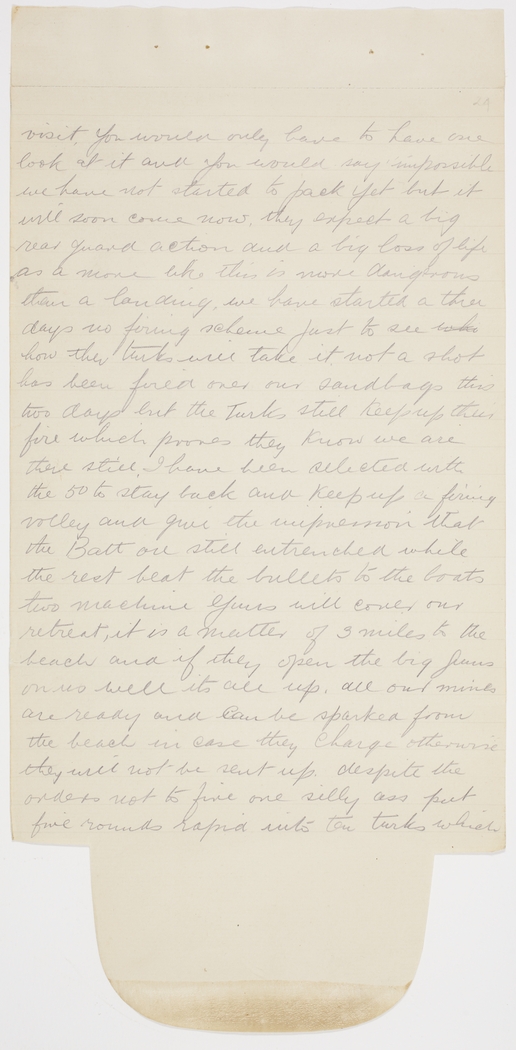 29
visit. You would only have to have one
look at it and you would say impossible
we have not started to pack yet but it
will soon come now. they expect a big
rear guard action and a big loss of life
as a move like this is more dangerous
than a landing, we have started a three
days no firing scheme just to see
how they turks will take it not a shot
has been fired over our sandbags this
two days but the Turks still keep up their
fire which proves they know we are
there still. I have been selected with
the 50 to stay back and keep up a firing
volley and give the impression that
the Batt are still entrenched while
the rest beat the bullets to the boats
two machine Guns will cover our
retreat, it is a matter of 3 miles to the
beach and if they open the big Guns
on us well its all up. all our mines
are ready and can be sparked from
the beach in case they charge otherwise
they will not be sent up. despite the
orders not to fire one silly ass put
five rounds rapid into ten turks which